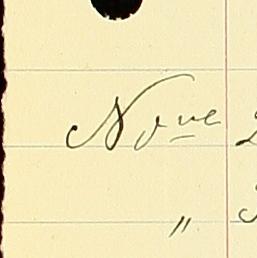 Nove
"